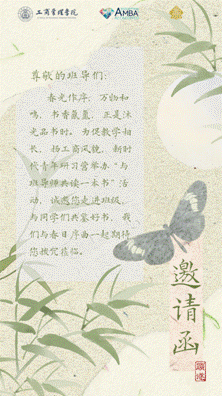 工商管理学院
AMBA
尊敬的班导们:
春光作序,万物和
鸣,书香氤氲,正是沐
光品书时。为促教学相
长,扬工商风貌,新时
代青年研习营举办“与
班导师共读一本书”活
动,诚邀您走进班级,
与同学们共鉴好书,我
们与春日序曲一起期待
您拨冗莅临。
邀请函